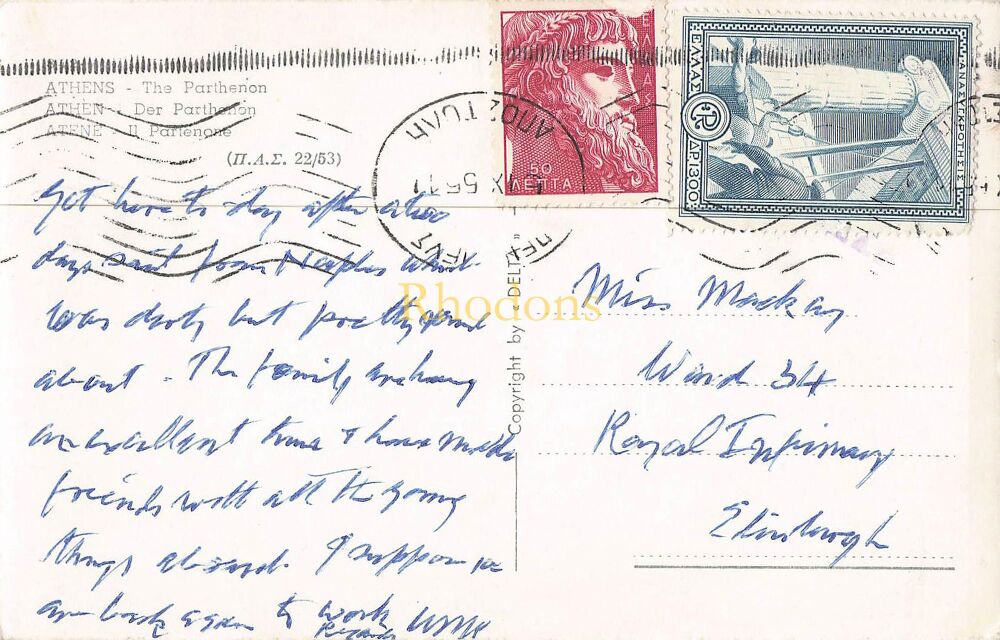 ATHENS - The Parthenon
ATHEN - Der Parthenon
ATENE - Il Partenone
(Π.Α.Σ. 22/53)
Got here to day after a
days sail from Naples which
was dirty but pretty
about. The family are having
an excellent time & have made
friends with all the young
things aboard. I suppose
are back again to work
Regards
Copyright by «DELTA»
Miss Mackay
Ward 34
Royal Infirmary
Edinburgh
50
ΛΕΠΤΑ
ΕΛΛΑΣ
ΑΝΑΣΥΓΚΡΟΤΗΣΙΣ
ΔΡ. 1300
ΑΠΟΣΤΟΛΗ
IX 56 11
Rhodons